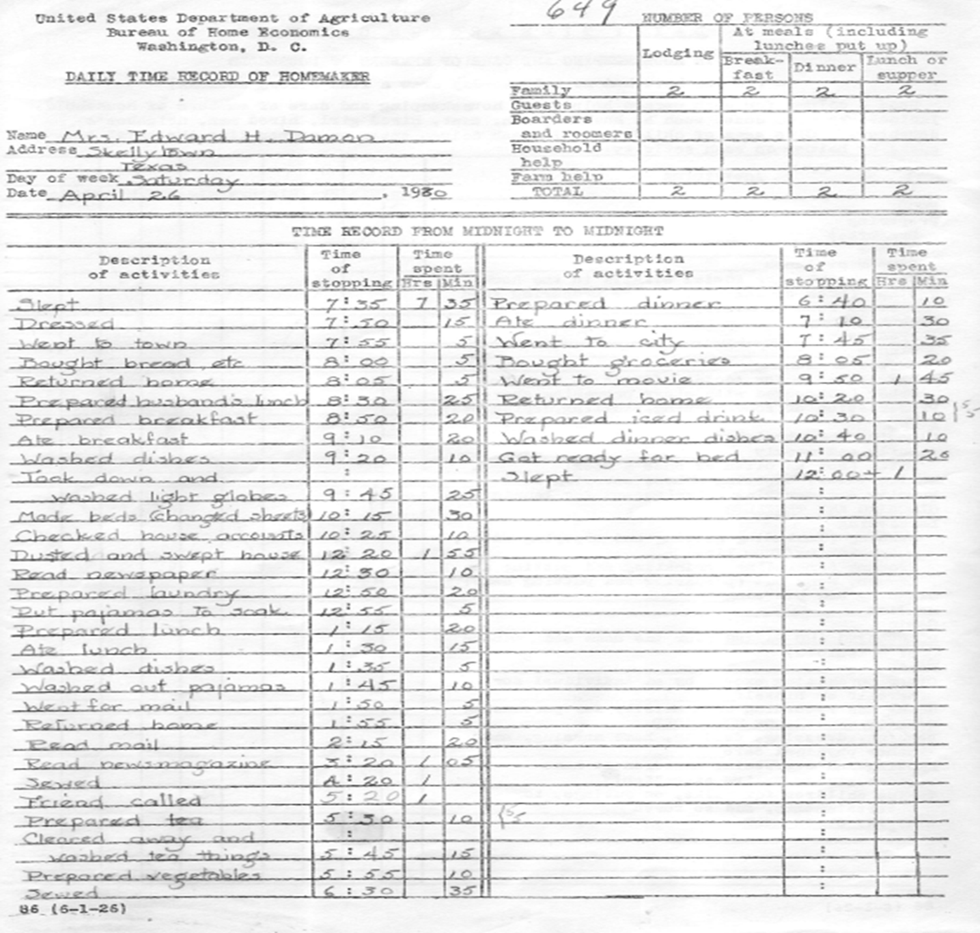 649
United States Department of Agriculture
Bureau of Home Economics
Washington, D. C.
DAILY TIME RECORD OF HOMEMAKER
NUMBER OF PERSONS
Lodging At meals (including lunches put up)
Break-fast Dinner Lunch or supper
Family 2 2 2 2
Guests
Boarders
and roomers
Household
help
Farm help
TOTAL 2 2 2 2
Name Mrs. Edward H. Damon
Address Skellytown
Texas
Day of week Saturday
Date April 26, 1930
TIME RECORD FROM MIDNIGHT TO MIDNIGHT
Description of activities Time of stopping Time spent Hrs Min
Slept 7:35 7 35
Dressed 7:50 15
Went to town 7:55 5
Bought bread etc 8:00 5
Returned home 8:05 5
Prepared husband's lunch 8:30 25
Prepared breakfast 8:50 20
Ate breakfast 9:10 20
Washed dishes 9:20 10
Took down and :
washed light globes 9:45 25
Made beds (changed sheets) 10:15 30
Checked house accounts 10:25 10
Dusted and swept house 12:20 1 55
Read newspaper 12:30 10
Prepared laundry 12:50 20
Put pajamas to soak 12:55 5
Prepared lunch 1:15 20
Ate lunch 1:30 15
Washed dishes 1:35 5
Washed out pajamas 1:45 10
Went for mail 1:50 5
Returned home 1:55 5
Read mail 2:15 20
Read newsmagazine 3:20 1 05
Sewed 4:20 1
Friend called 5:20 1
Prepared tea 5:30 10
Cleared away and :
washed tea things 5:45 15
Prepared vegetables 5:55 10
Sewed 6:30 35
Description of activities Time of stopping Time spent Hrs Min
Prepared dinner 6:40 10
Ate dinner 7:10 30
Went to city 7:45 35
Bought groceries 8:05 20
Went to movie 9:50 1 45
Returned home 10:20 30
Prepared iced drink 10:30 10
Washed dinner dishes 10:40 10
Got ready for bed 11:00 20
Slept 12:00 1
86 (6-1-26)